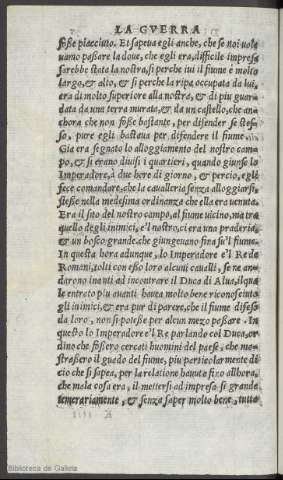 LA GVERRA
fosse piacciuto. Et sapeua egli anche, che se noi uole
uamo passare la doue, che egli era, difficile impresa
sarebbe stata la nostra, si perche iui il fiume è molto
largo, & alto, & si perche la ripa occupata da lui,
era di molto superiore alla nostra, & di più guar=
data da una terra murata, & da un castello, che an=
chora che non fosse bastante, per difender se stes=
so, pure egli bastaua per difendere il fiume.
Gia era segnato lo alloggiamento del nostro cam=
po, & si erano diuisi i quartieri, quando giunse lo
Imperadore, à due hore di giorno, & percio, egli
fece comandare, che la cauallerìa senza alloggiarsi
stesse nella medesima ordinanza che ella era uenuta.
Era il sito del nostro campo, al fiume uicino, ma tra
quello degli inimici, e'l nostro, ci era una praderia,
& un bosco grande, che giungeuano fina su'l fiume.
In questa hora adunque, lo Imperadore e'l Re de
Romani, tolti con esso loro alcuni caualli, se ne an=
darono inanti ad incontrare il Duca di Alua, il qua
le entrato piu auanti haueua molto bene riconosciuto
gli inimici, & era pur di parere, che il fiume difeso
da loro, non si potesse per alcun mezo passare. In
questo lo Imperadore e'l Re parlando col Duca, or=
dinò che fossero cercati huomini del paese, che mo=
strassero il guado del fiume, piu particolarmente di
cio che si sapea, per la relatione hauuta fino allhora,
che mala cosa era, il mettersi ad impresa si grande
temerariamente, & senza saper molto bene, tutto
Biblioteca de Galicia